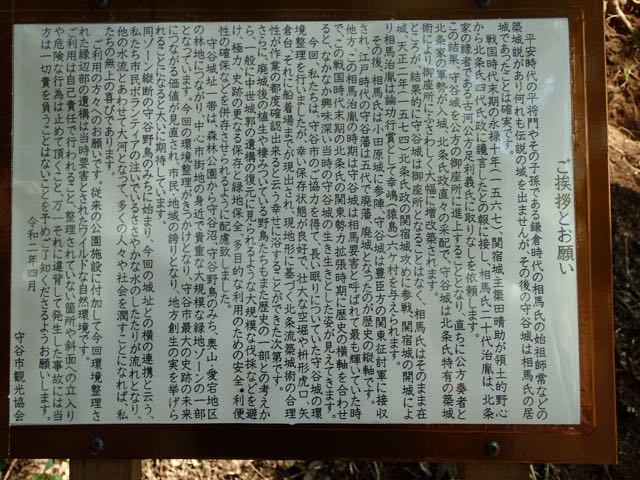 ご挨拶とお願い
平安時代の平将門やその子孫である鎌倉時代の相馬氏の始祖師常などの
築城説があり何れも伝説の域を出ませんが、その後の守谷城は相馬氏の居
城であったことは確実です。
戦国時代末期の永禄十年(一五六七)、関宿城主簗田晴助が領土的野心
から北条氏四代氏政に讒言したとの報に接し、相馬氏二十代治胤は、北条
家の縁者である古河公方足利義氏に取りなしを依頼します。
この結果、守谷城を公方の御座所に進上することとなり、直ちに公方奏者と
北条家の軍勢が入城、北条氏政直々の采配で、守谷城は北条氏特有の築城
術により御座所にふさわしく大幅に増改築されます。
ところが、結果的に守谷城は御座所となることはなく、相馬氏はそのまま在
城、天正二年(一五七四)北条氏政の関宿城攻めに参戦、関宿城の開城によ
り相馬治胤は論功行賞として幸嶋(猿島)の一部を与えられます。
その後、相馬氏は小田原城へ参陣、守谷城は豊臣方の関東征討軍に接収
され、江戸時代の守谷藩は五代で廃藩、廃城となったのが歴史の縦軸です。
他方、この相馬治胤の時期は守谷城は相馬要害と呼ばれて最も輝いていた時
で、この戦国時代末期の北条氏の関東勢力拡張時期に歴史の横軸を合わせ
ると、なかなか興味深い当時の守谷城の生き生きとした姿が見えてきます。
今回、私たちは、守谷市のご協力を得て、長い眠りについていた守谷城の環
境整理を行いましたが、幸い保存状態が良好で、壮大な空堀や枡形虎口、矢
倉台、それに船着場までが現出され、現地形に基づく北条流築城術の合理
性が作業の都度確認出来ると云う幸せに浴することができた次第です。
さらに、廃城後の植生や棲みついている野鳥たちもまた歴史の一部との考えか
ら、一般に中世城郭の遺構の後市に見られるような大規模な伐採などを避
け、極力、史跡の更なる保存と緑地保全、市民的な利用のための安全・利便
性の確保などを併存させることに配慮致しました。
守谷城址一帯は、森林公園から守谷沼、守谷野鳥のみち、奥山・愛宕地区
の林地につながり、中心市街地の身近で貴重な大規模な緑地ゾーンの一部
となっています。今回の環境整備がきっかけとなり、守谷市最大の史跡の未来
につながる価値が見直され、市民・地域の誇りとなり、地方創生の実を挙げら
れることになると大いに期待しています。
同ゾーン縦断の守谷野鳥のみちに始まり、今回の城址との横の連携と云う、
私たち市民ボランティアの注いでいるささやかな水のしたたりが流れとなり、
他の水流とあわせて大河となって、多くの人々や社会を潤すことになれば、私
たちの無上の喜びであります。
ご利用の方々へのお願いです。従来の公園施設に付加して今回環境整理さ
れた緑部分の遺構は当時要害とされたワイルドな自然環境です。
ご利用は自己責任で行われること、整理されていない箇所や斜面への立入り
や危険な行為は止めていただくこと、万一それに違背して発生した事故には当
方は一切責を負うことはないことを予めご了知くださるようお願いします。
令和二年四月
守谷市観光協会